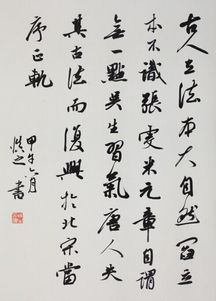 古人立法本大自然 留立
本不識張雯米元章自謂
無一點吳生習氣唐人失
其古法而復興於北宋當
序正軌
甲午六月
慎之書